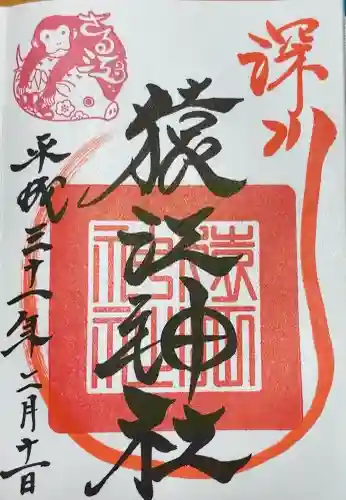 深川
猿江神社
平成三十一年二月十一日
さるえ
猿江神社